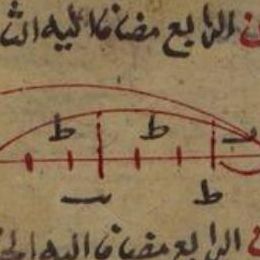 ن الرابع مضافا اليه الثا
ط ط د
ب ط
ن الرابع مضافا اليه الحا